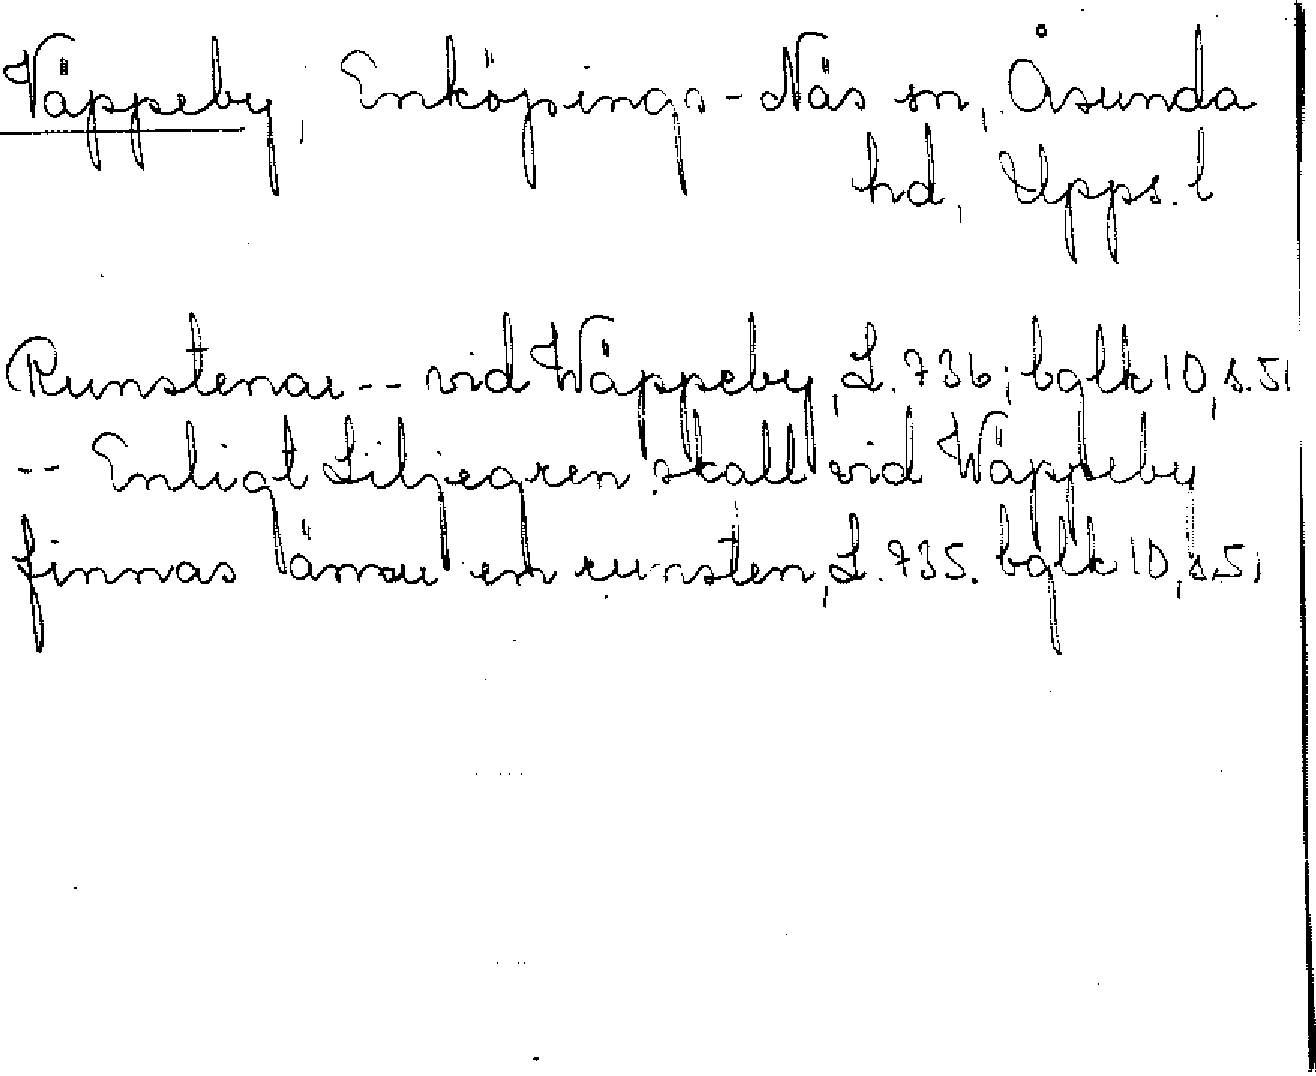 Väppeby, Enköpings-Näs sn, Åsunda
hd, Upps. l
Runstenar -- vid Wäppeby, L. 736; bglk 10, s. 51
-- Enligt Liljegren skall vid Wäppeby
finnas ännu en runsten, L. 735. bglk 10, s. 51